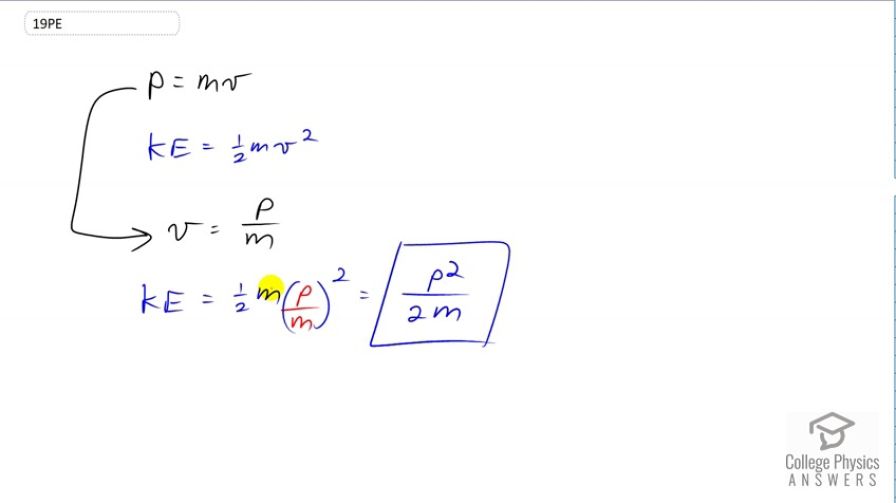 19PE
p = mv
KE = ½mv²
v = p/m
KE = ½m(p/m)² = p²/2m
College Physics
ANSWERS